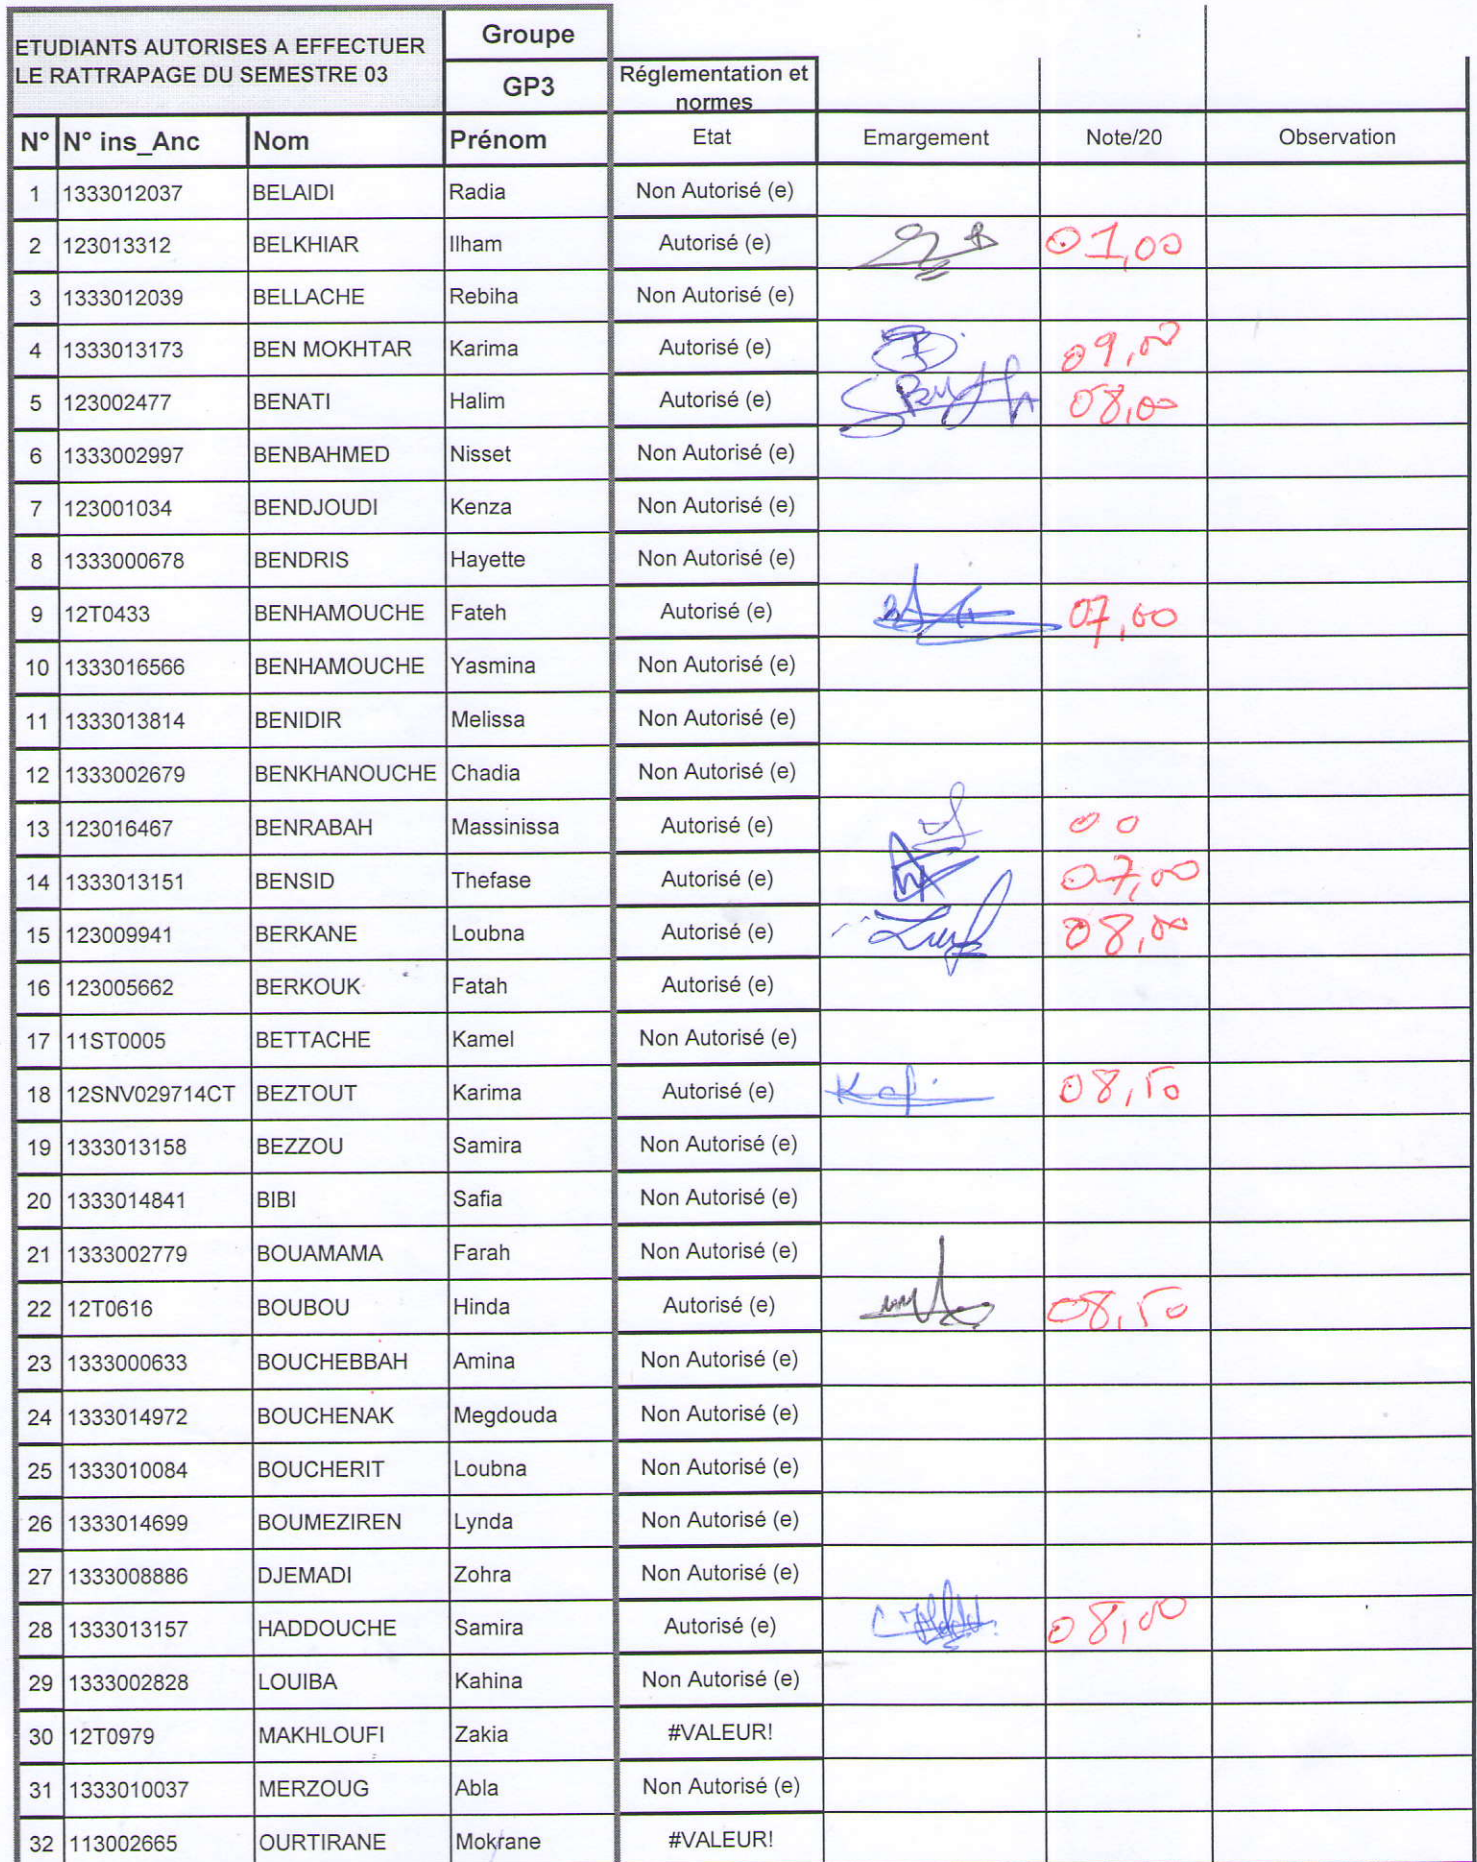 ETUDIANTS AUTORISES A EFFECTUER LE RATTRAPAGE DU SEMESTRE 03 Groupe
GP3 Réglementation et normes
N° N° ins_Anc Nom Prénom Etat Emargement Note/20 Observation
1 1333012037 BELAIDI Radia Non Autorisé (e)
2 123013312 BELKHIAR Ilham Autorisé (e) 01,00
3 1333012039 BELLACHE Rebiha Non Autorisé (e)
4 1333013173 BEN MOKHTAR Karima Autorisé (e) 09,00
5 123002477 BENATI Halim Autorisé (e) 08,00
6 1333002997 BENBAHMED Nisset Non Autorisé (e)
7 123001034 BENDJOUDI Kenza Non Autorisé (e)
8 1333000678 BENDRIS Hayette Non Autorisé (e)
9 12T0433 BENHAMOUCHE Fateh Autorisé (e) 07,00
10 1333016566 BENHAMOUCHE Yasmina Non Autorisé (e)
11 1333013814 BENIDIR Melissa Non Autorisé (e)
12 1333002679 BENKHANOUCHE Chadia Non Autorisé (e)
13 123016467 BENRABAH Massinissa Autorisé (e) 00
14 1333013151 BENSID Thefase Autorisé (e) 07,00
15 123009941 BERKANE Loubna Autorisé (e) 08,00
16 123005662 BERKOUK Fatah Autorisé (e)
17 11ST0005 BETTACHE Kamel Non Autorisé (e)
18 12SNV029714CT BEZTOUT Karima Autorisé (e) 08,50
19 1333013158 BEZZOU Samira Non Autorisé (e)
20 1333014841 BIBI Safia Non Autorisé (e)
21 1333002779 BOUAMAMA Farah Non Autorisé (e)
22 12T0616 BOUBOU Hinda Autorisé (e) 08,50
23 1333000633 BOUCHEBBAH Amina Non Autorisé (e)
24 1333014972 BOUCHENAK Megdouda Non Autorisé (e)
25 1333010084 BOUCHERIT Loubna Non Autorisé (e)
26 1333014699 BOUMEZIREN Lynda Non Autorisé (e)
27 1333008886 DJEMADI Zohra Non Autorisé (e)
28 1333013157 HADDOUCHE Samira Autorisé (e) 08,00
29 1333002828 LOUIBA Kahina Non Autorisé (e)
30 12T0979 MAKHLOUFI Zakia #VALEUR!
31 1333010037 MERZOUG Abla Non Autorisé (e)
32 113002665 OURTIRANE Mokrane #VALEUR!